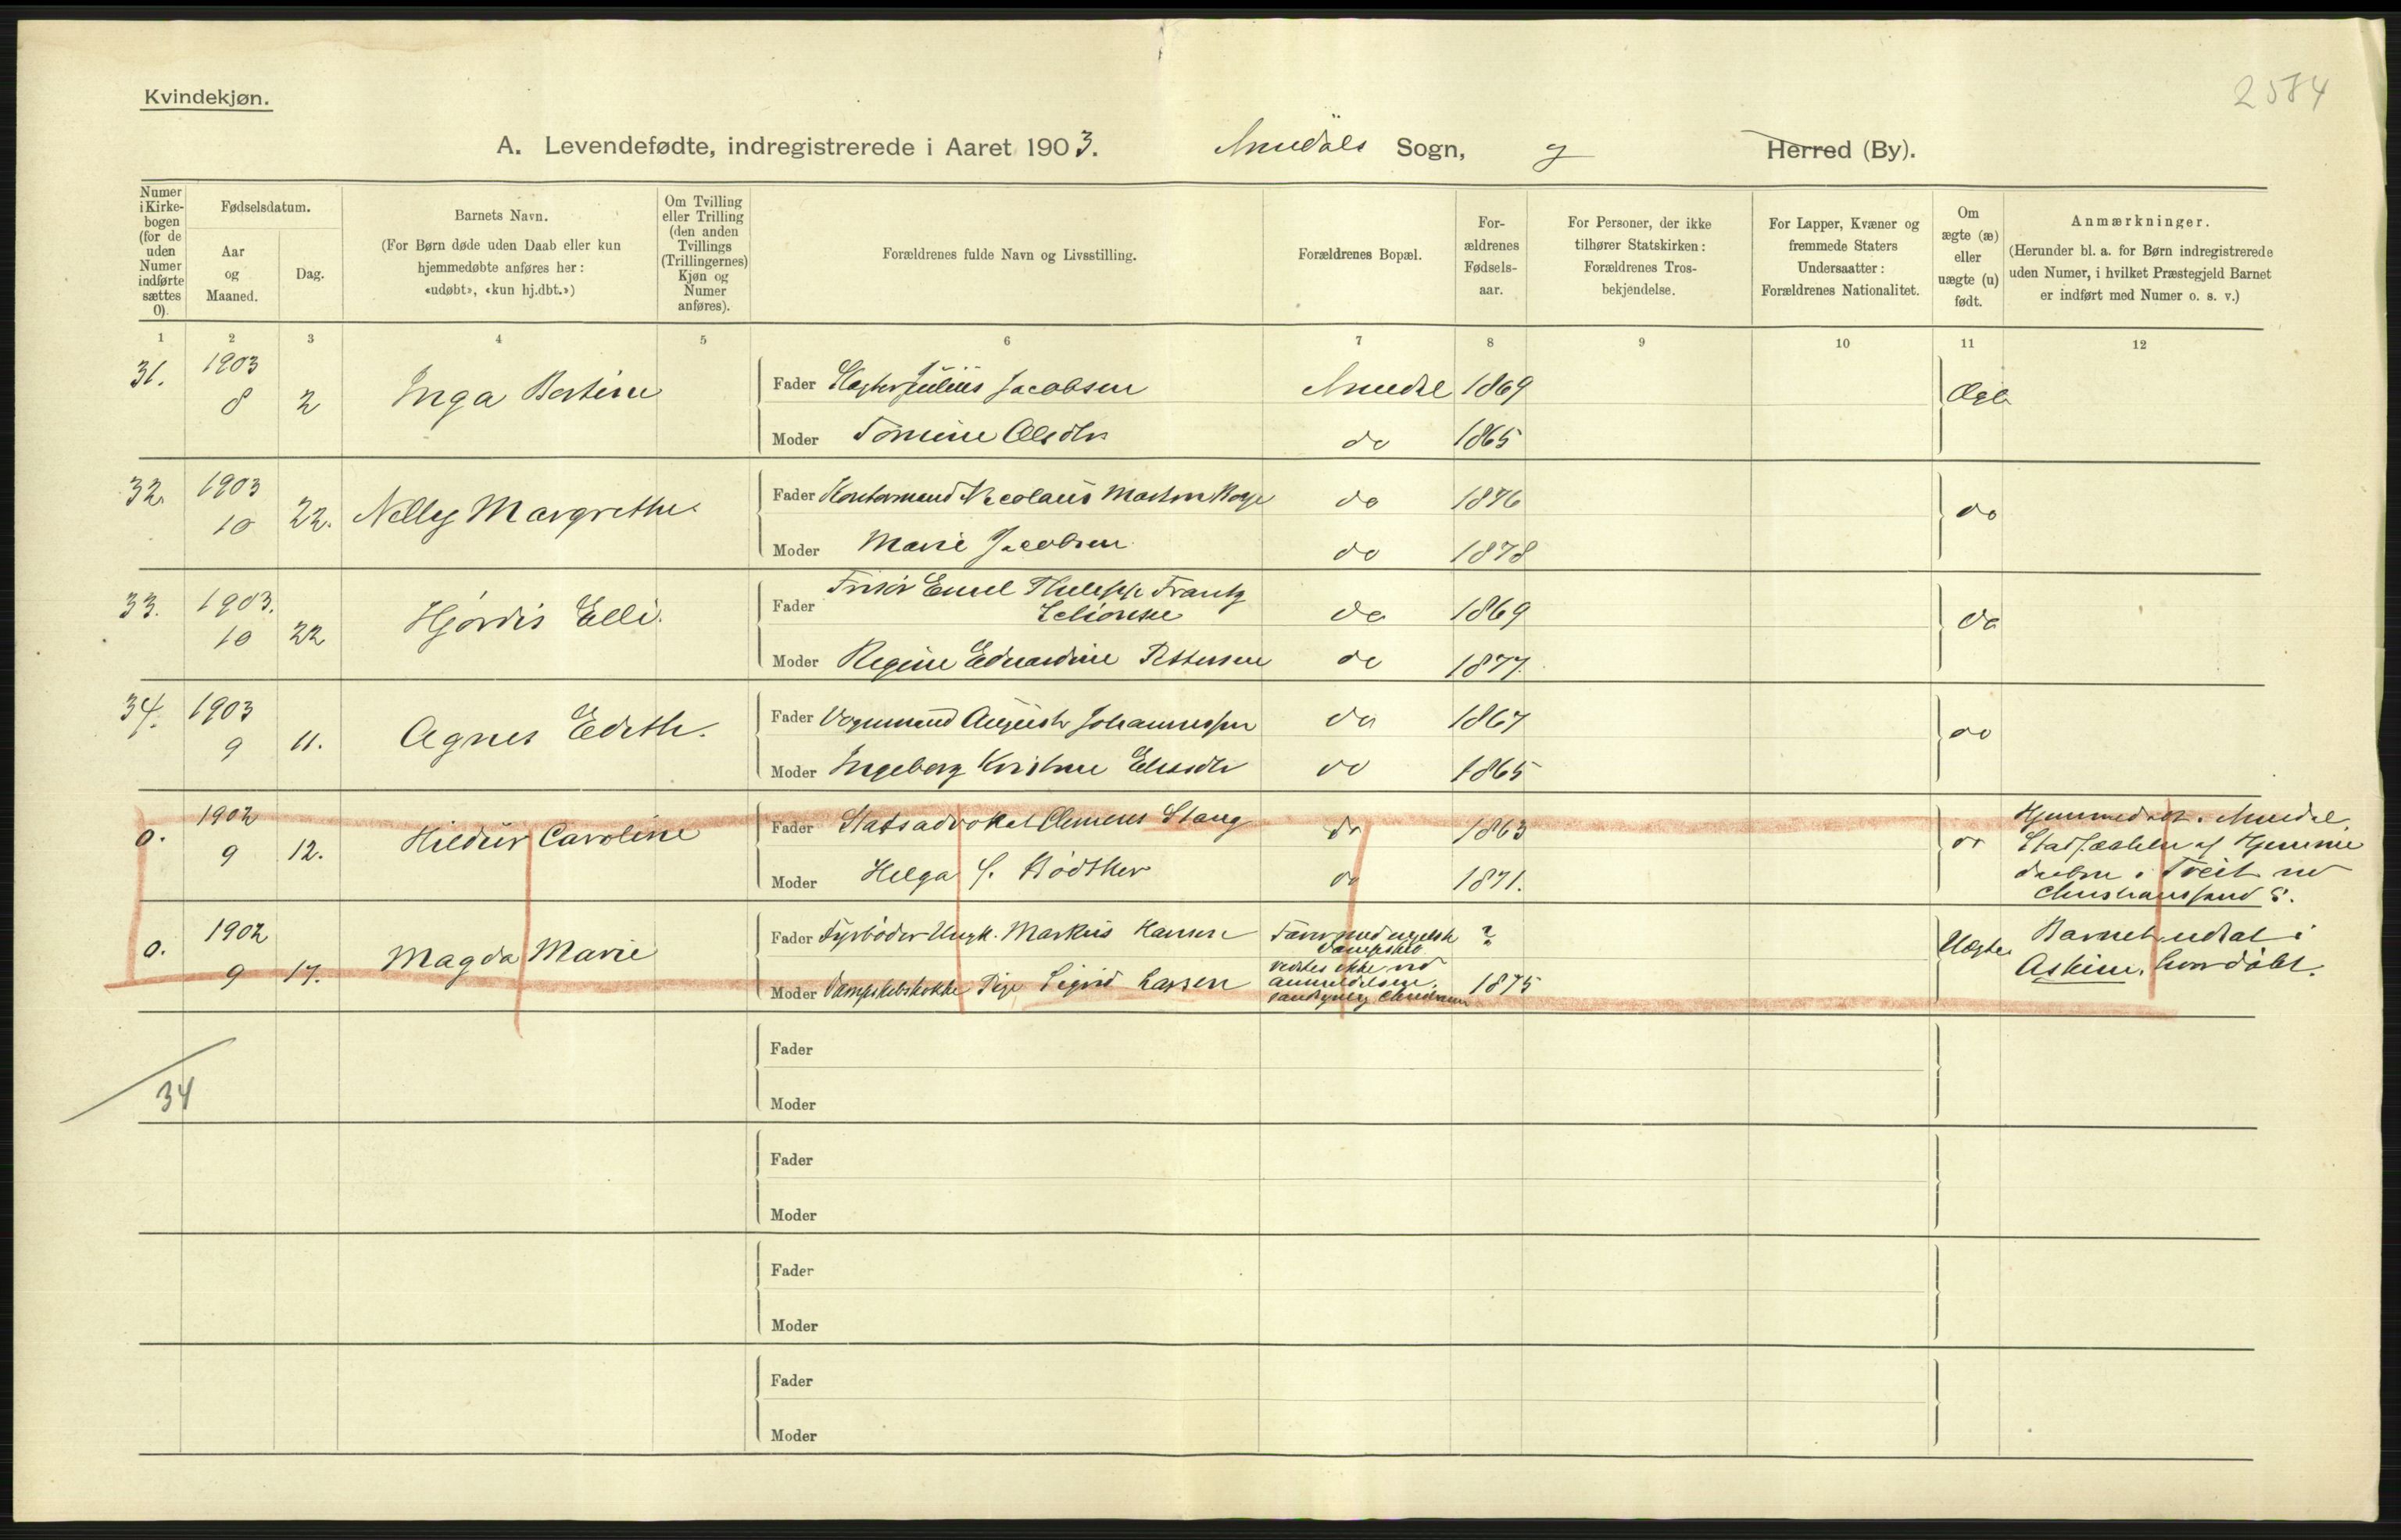 Kvindekjøn.
2584
A. Levendefødte, indregistrerede i Aaret 1903. Sogn, Herred (By).
Numer i Kirke-bogen (for de uden Numer indførte sættes 0).
Fødselsdatum.
Aar og Maaned.
Dag.
Barnets Navn.
(For Børn døde uden Daab eller kun hjemmedøbte anføres her: «udøbt», «kun hj.dbt.»)
Om Tvilling eller Trilling (den anden Tvillings (Trillingernes) Kjøn og Numer anføres).
Forældrenes fulde Navn og Livsstilling.
Forældrenes Bopæl.
For-ældrenes Fødsels-aar.
For Personer, der ikke tilhører Statskirken: Forældrenes Tros-bekjendelse.
For Lapper, Kvæner og fremmede Staters Undersaatter: Forældrenes Nationalitet.
Om ægte (æ) eller uægte (u) født.
Anmærkninger.
(Herunder bl. a. for Børn indregistrerede uden Numer, i hvilket Præstegjeld Barnet er indført med Numer o. s. v.)
1 2 3 4 5 6 7 8 9 10 11 12
31. 1903 8 2 Inga Bertine
Fader Julius Jacobsen 1869
Moder Tomine Olsdtr do 1865
32. 1903 10 22. Nelly Margrethe
Fader Nicolaus do 1876 do
Moder Marie Jacobsen do 1878
33. 1903. 10 22 Hjördis Elli.
Fader Frisör Emil Frantz do 1869 do
Moder Regine Eduardine Pettersen do 1877.
34. 1903 9 11. Agnes Edith.
Fader Vognmand August Johannessen do 1867 do
Moder Ingeborg Kristine do 1865
0. 1902 9 12. Hildur Caroline
Fader Statsadvokat Clemens Stang do 1863 do
Moder Helga S. Bödtker do 1871.
0. 1902 9 17. Magda Marie
Fader Fyrböder Ungk. Markus Hansen ?
Moder Dampskibskokke Pige Sigrid Larsen 1875
Barnet i
Askim, hvor döbt.
34
Fader
Moder
Fader
Moder
Fader
Moder
Fader
Moder